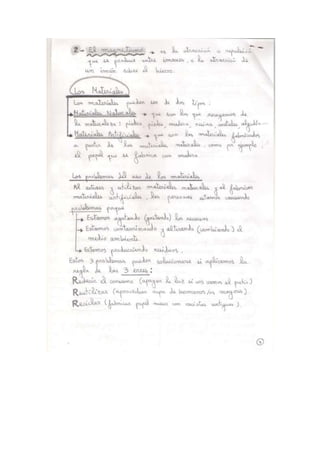 2- El magnetismo → es la atracción o repulsión
que se produce entre imanes, o la atracción de
un imán sobre el hierro.
Los Materiales
Los materiales pueden ser de dos tipos:
→ Materiales Naturales → que son los que recogemos de
la naturaleza: piedra, madera, resina, metales, algodón
→ Materiales Artificiales → que son los materiales fabricados
a partir de los materiales naturales, como por ejemplo
el papel que se fabrica con madera
Los problemas del uso de los materiales
Al extraer y utilizar materiales naturales y al fabricar
materiales artificiales, las personas estamos causando
problemas porque
→ Estamos agotando (gastando) los recursos
→ Estamos contaminando y alterando (cambiando) el
medio ambiente.
→ Estamos produciendo residuos.
Estos 3 problemas pueden solucionarse si aplicamos la
regla de las 3 erres:
Reducir el consumo (apagar la luz si nos vamos al patio)
Reutilizar (aprovechar ropa de hermanos/as mayores)
Reciclar (fabricar papel nuevo con revistas antiguas).